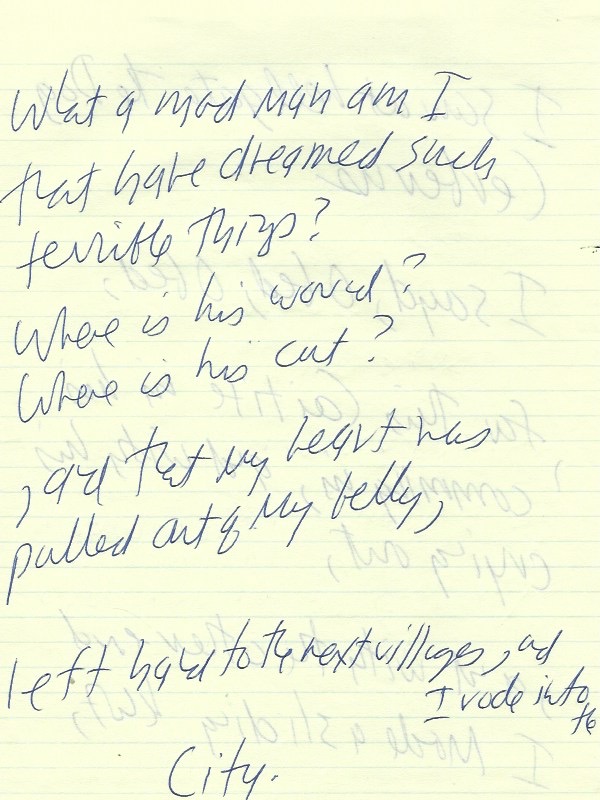 What a mad man am I
that have dreamed such
terrible things?
Where is his wound?
Where is his cut?
, and that my heart was
pulled out of my belly,
left hand to the next villages, and
I rode into
the
City.